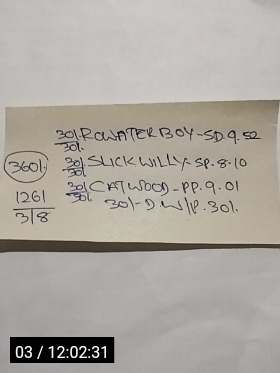 30/- ROWATERBOY-SD.9.52
30/-
360/- 30/- SLICK WILLY-SP.8.10
30/-
1261 30/- CATWOOD-PP.9.01
30/-
3/8 30/-D.W/P.30/-
03 / 12:02:31